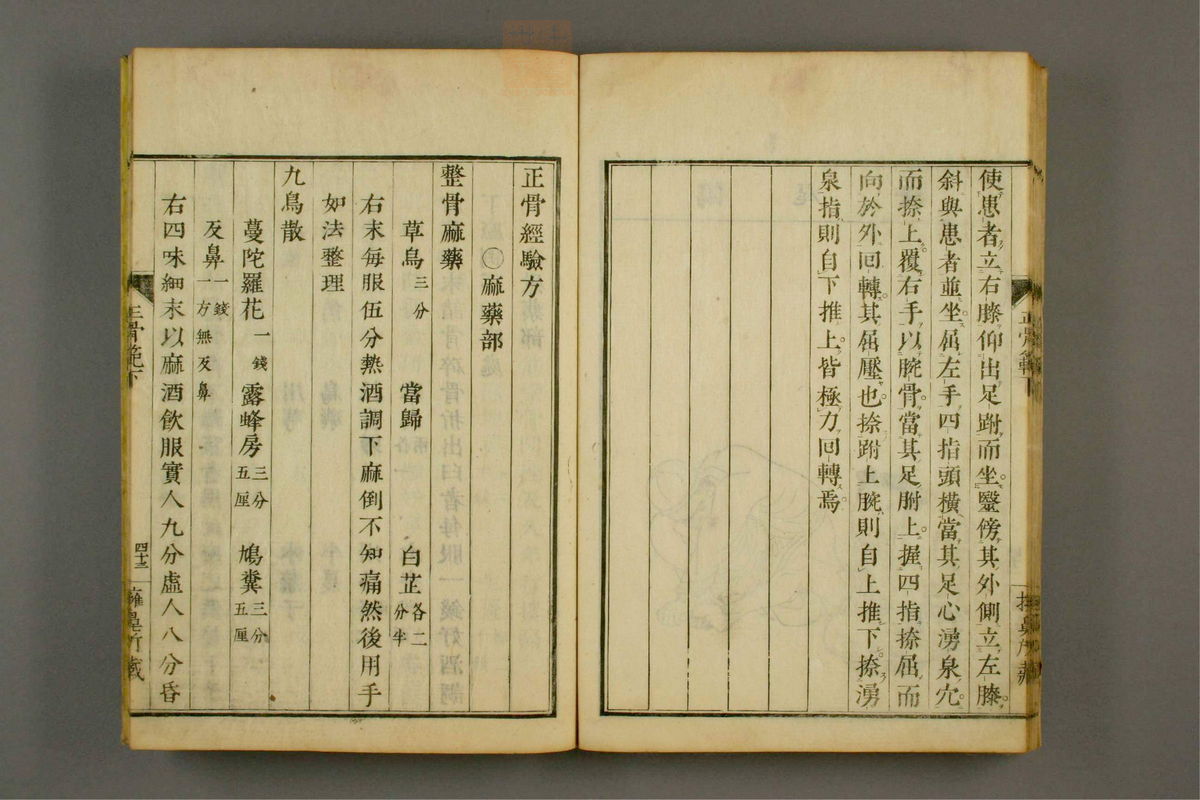 使患者立右膝仰出足跗而坐毉傍其外側立左膝
斜與患者並坐屈左手四指頭橫當其足心湧泉穴
而捺上覆右手以腕骨當其足胕上握四指捺屈而
向於外回轉其屈壓也捺跗上腕則自上推下捺湧
泉指則自下推上皆極力回轉焉
正骨經驗方
〇麻藥部
整骨麻藥
草烏三分 當歸 白芷各二分半
右末每服伍分熱酒調下麻倒不知痛然後用手
如法整理
九烏散
蔓陀羅花一錢 露蜂房三分五厘 鳩糞三分五厘
反鼻一錢一方無反鼻
右四味細末以麻酒飲服實人九分虛人八分昏
正骨範下
四十三